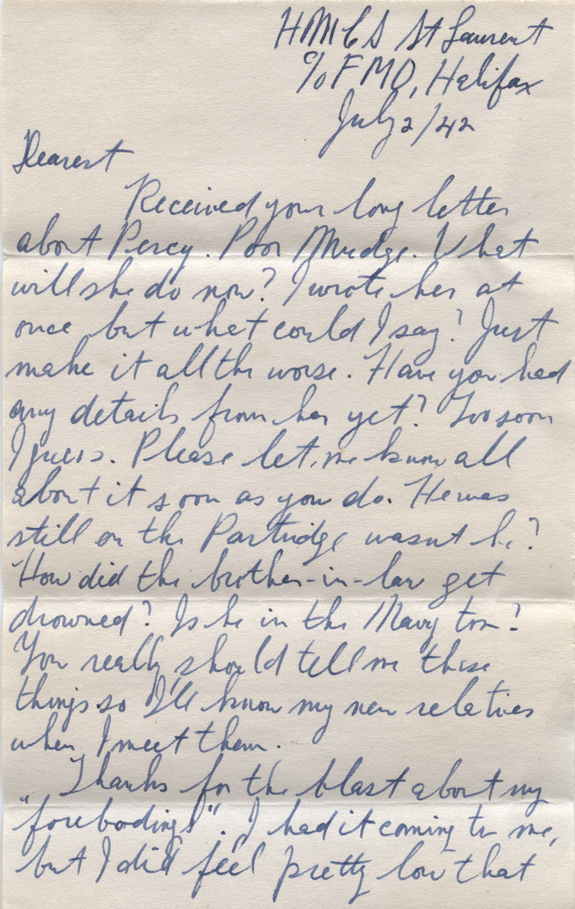 HMCS St Laurent
c/o FMO, Halifax
July 2/42
Dearest
Received your long letter
about Percy. Poor Mudge. What
will she do now? I wrote her at
once but what could I say? Just
make it all the worse. Have you had
any details from her yet? Too soon
I guess. Please let me know all
about it soon as you do. He was
still on the Partridge wasnt he?
How did the brother-in-law get
drowned? Is he in the Navy too?
You really should tell me these
things so I'll know my new relatives
when I meet them.
Thanks for the blast about my
"forebodings". I had it coming to me,
but I did feel pretty low that